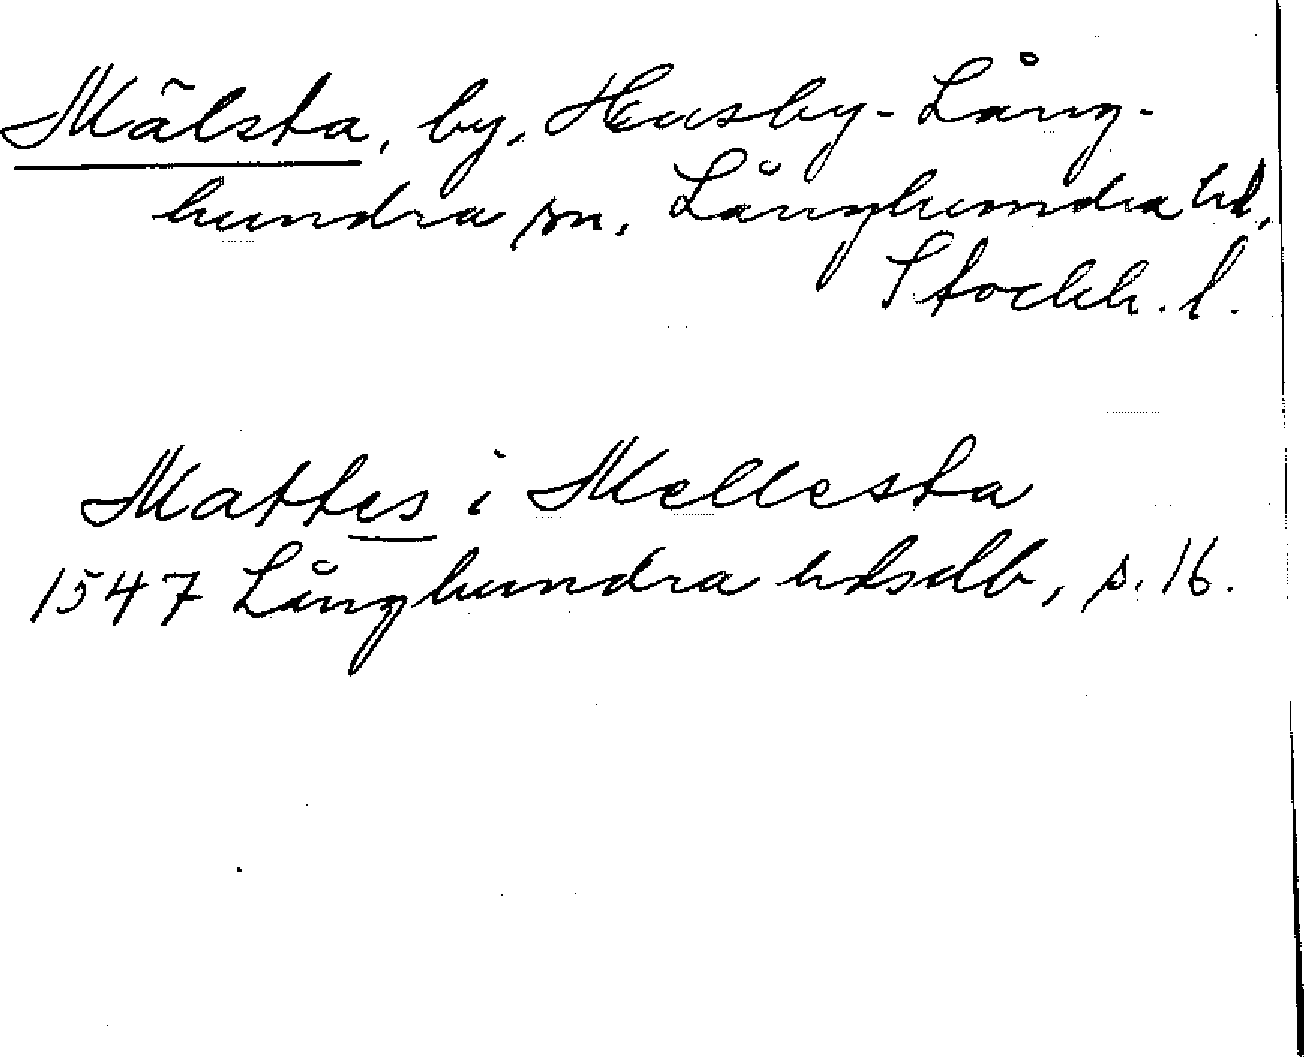 Mälsta, by, Husby-Lång-
hundra sn, Långhundra hd,
Stockh. l.
Mattes i Mellesta
1547 Långhundra hdsdb, s. 16.